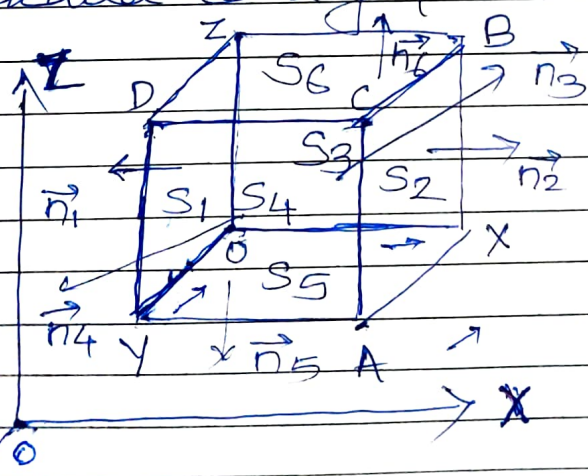 Z
B
S6
n⃗6
n⃗3
Z
D
C
S3
n⃗2
n⃗1
S1
S4
S2
O
X
S5
n⃗4
Y
n⃗5
A
X
O